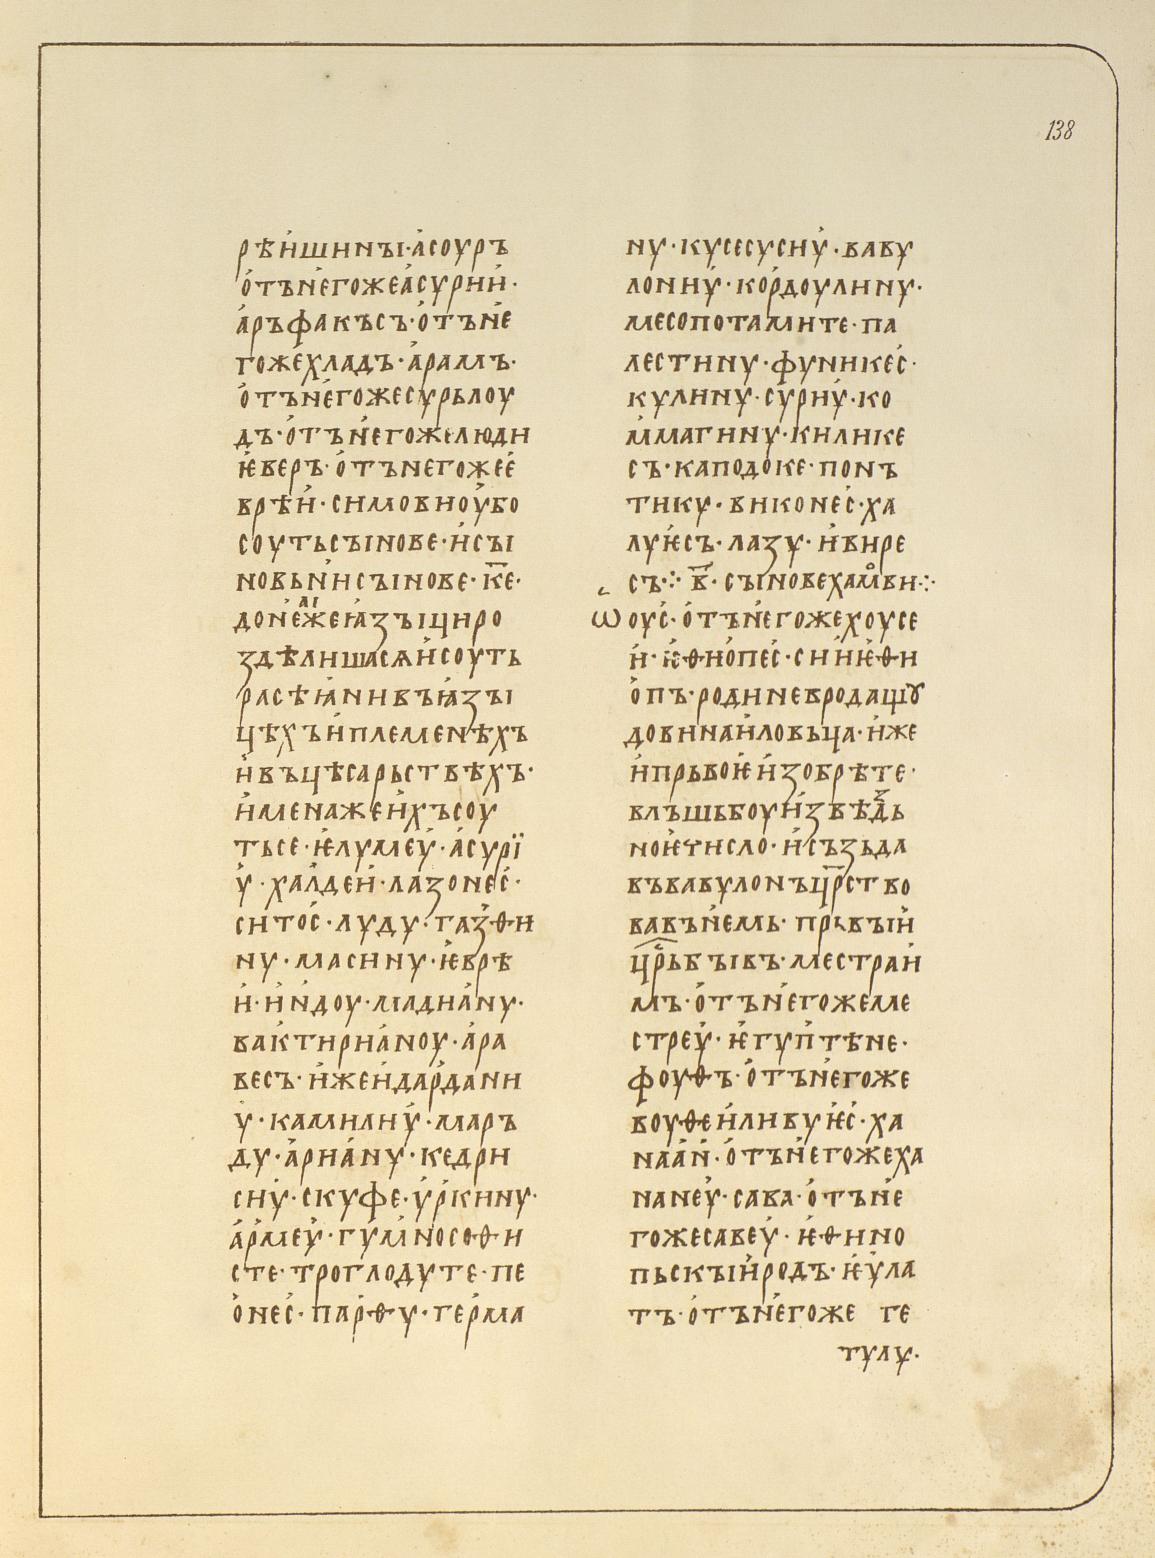 138
рѣйшины·асоуръ
отънегожеасурии·
аръфакъсъ·отъне
гожехладъ·арамъ·
отънегожесурьлоу
дъ·отънегожелюди
ѥверъ·отънегожее
врѣи·симовноубо
соутьсынове·исы
новьнисынове·к҃е·
донележеꙗзыциро
здѣлишасѧисоуть
расѣꙗнивъꙗзы
цѣхъиплеменѣхъ
ивъцѣсарьствѣхъ·
именажеихъсоу
тьсе·ѥлумеу·асурї
у·халдеи·лазонес·
ситос·луду·газѳи
ну·масину·ѥврѣ
и·индоу·мадиану·
вактирианоу·ара
весъ·ижеидардани
у·камилиу·маръ
ду·ариану·кедри
сиу·скуфе·уркину·
армеу·гумносоѳи
сте·троглодуте·пе
онес·парѳу·герма
ну·кусесусиу·вабу
лониу·кордоулину·
месопотамите·па
лестину·фуникес·
кулину·сурну·ко
ммагину·килике
съ·каподоке·понъ
тику·виконес·ха
луѥсъ·лазу·ивире
съ⁘ в҃·сыновехамови⁘
ѡоус·отънегожехоусе
и·ѥѳиопес·синѥѳи
опъ·родиневродащꙋ
довинаиловьца·иже
ипрьвоѥизобрѣте·
влъшьбоуизвѣздь
ноѥчисло·исъзьда
въвавулонъцр҃ство
вавънемь·прьвыи
цр҃ьбывъ·местраи
мъ·отънегожеме
стреу·ѥгуптѣне·
фоуѳъ·отънегоже
воуѳеиливуѥс·ха
наан·отънегожеха
нанеу·сава·отъне
гожесавеу·ѥѳио
пьскыиродъ·ѥула
тъ·отънегоже ге
тулу·